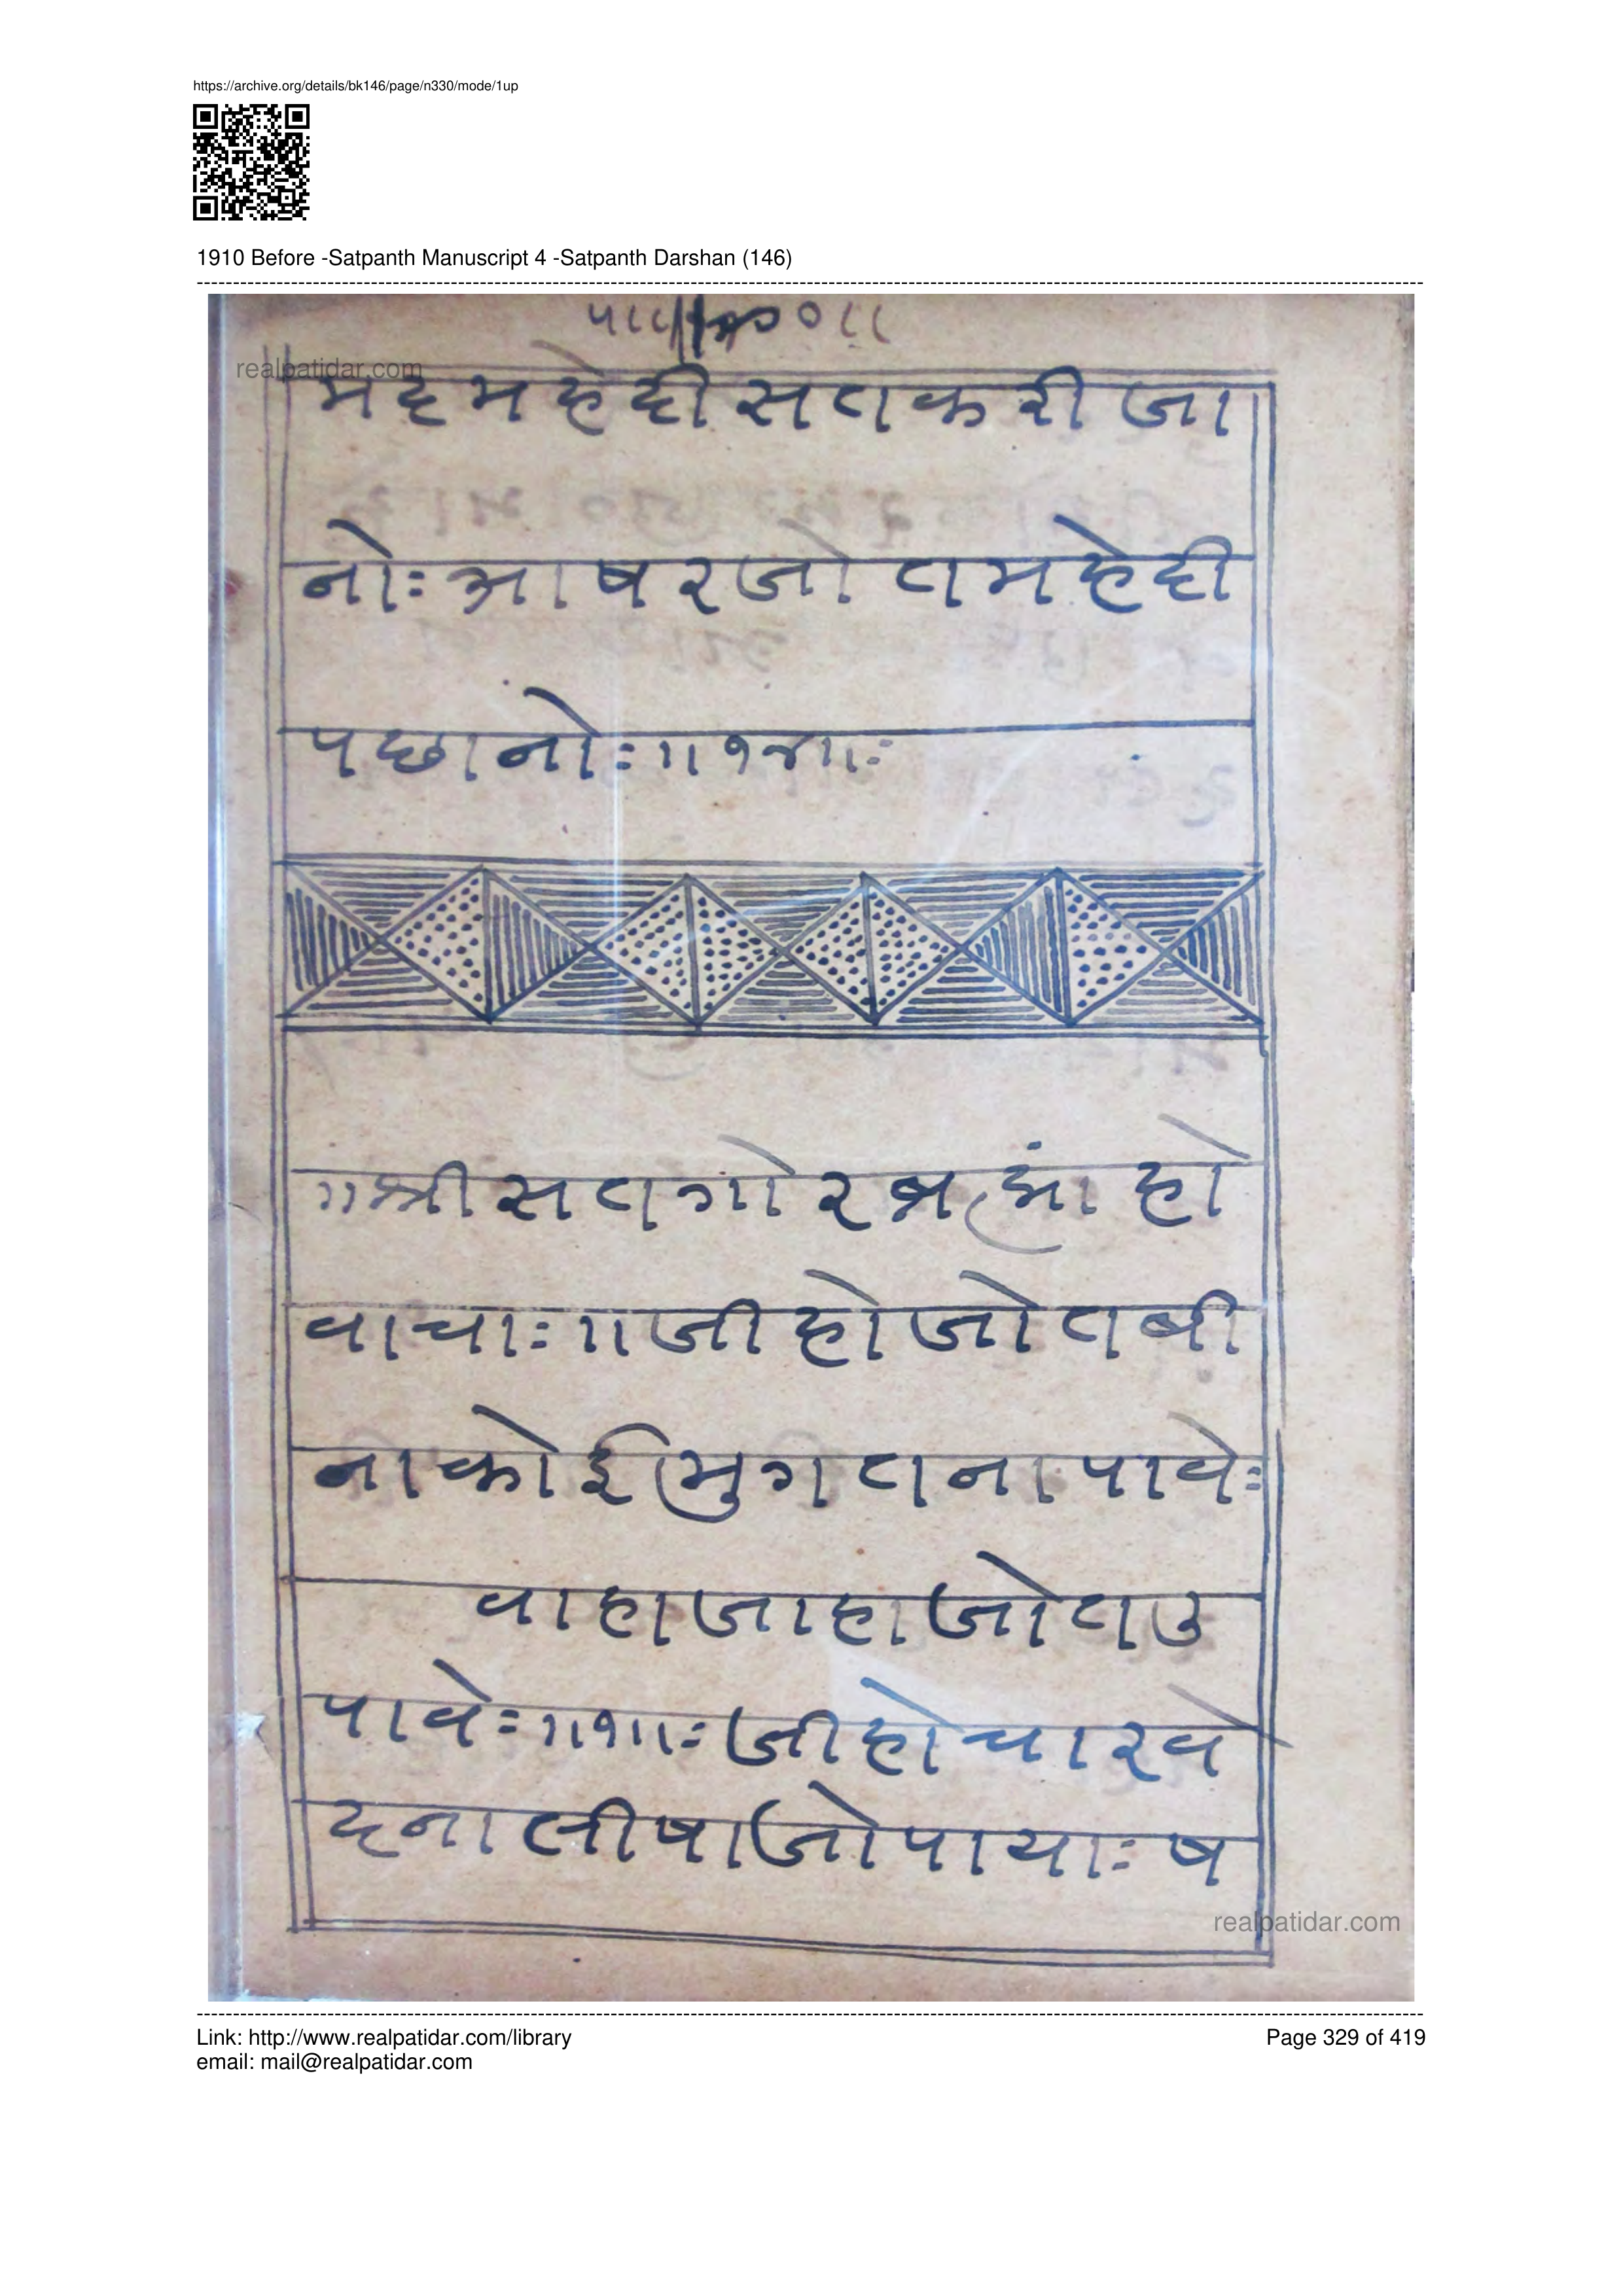 https://archive.org/details/bk146/page/n330/mode/1up
1910 Before -Satpanth Manuscript 4 -Satpanth Darshan (146)
realpatidar.com
मदमहेदीसतकरीजा
नोः आषरजोतमहेदी
पछानोः॥१४॥ः
॥स्रीसतगोरब्रह्मांहो
वाचाः॥जीहोजोतबी
नाकोईमुगतनापावेः
वाहाजाहाजोतउ
पावेः॥१॥ः जीहोचारवे
दनालीषाजोपायाः ष
realpatidar.com
Link: http://www.realpatidar.com/library
Page 329 of 419
email: mail@realpatidar.com